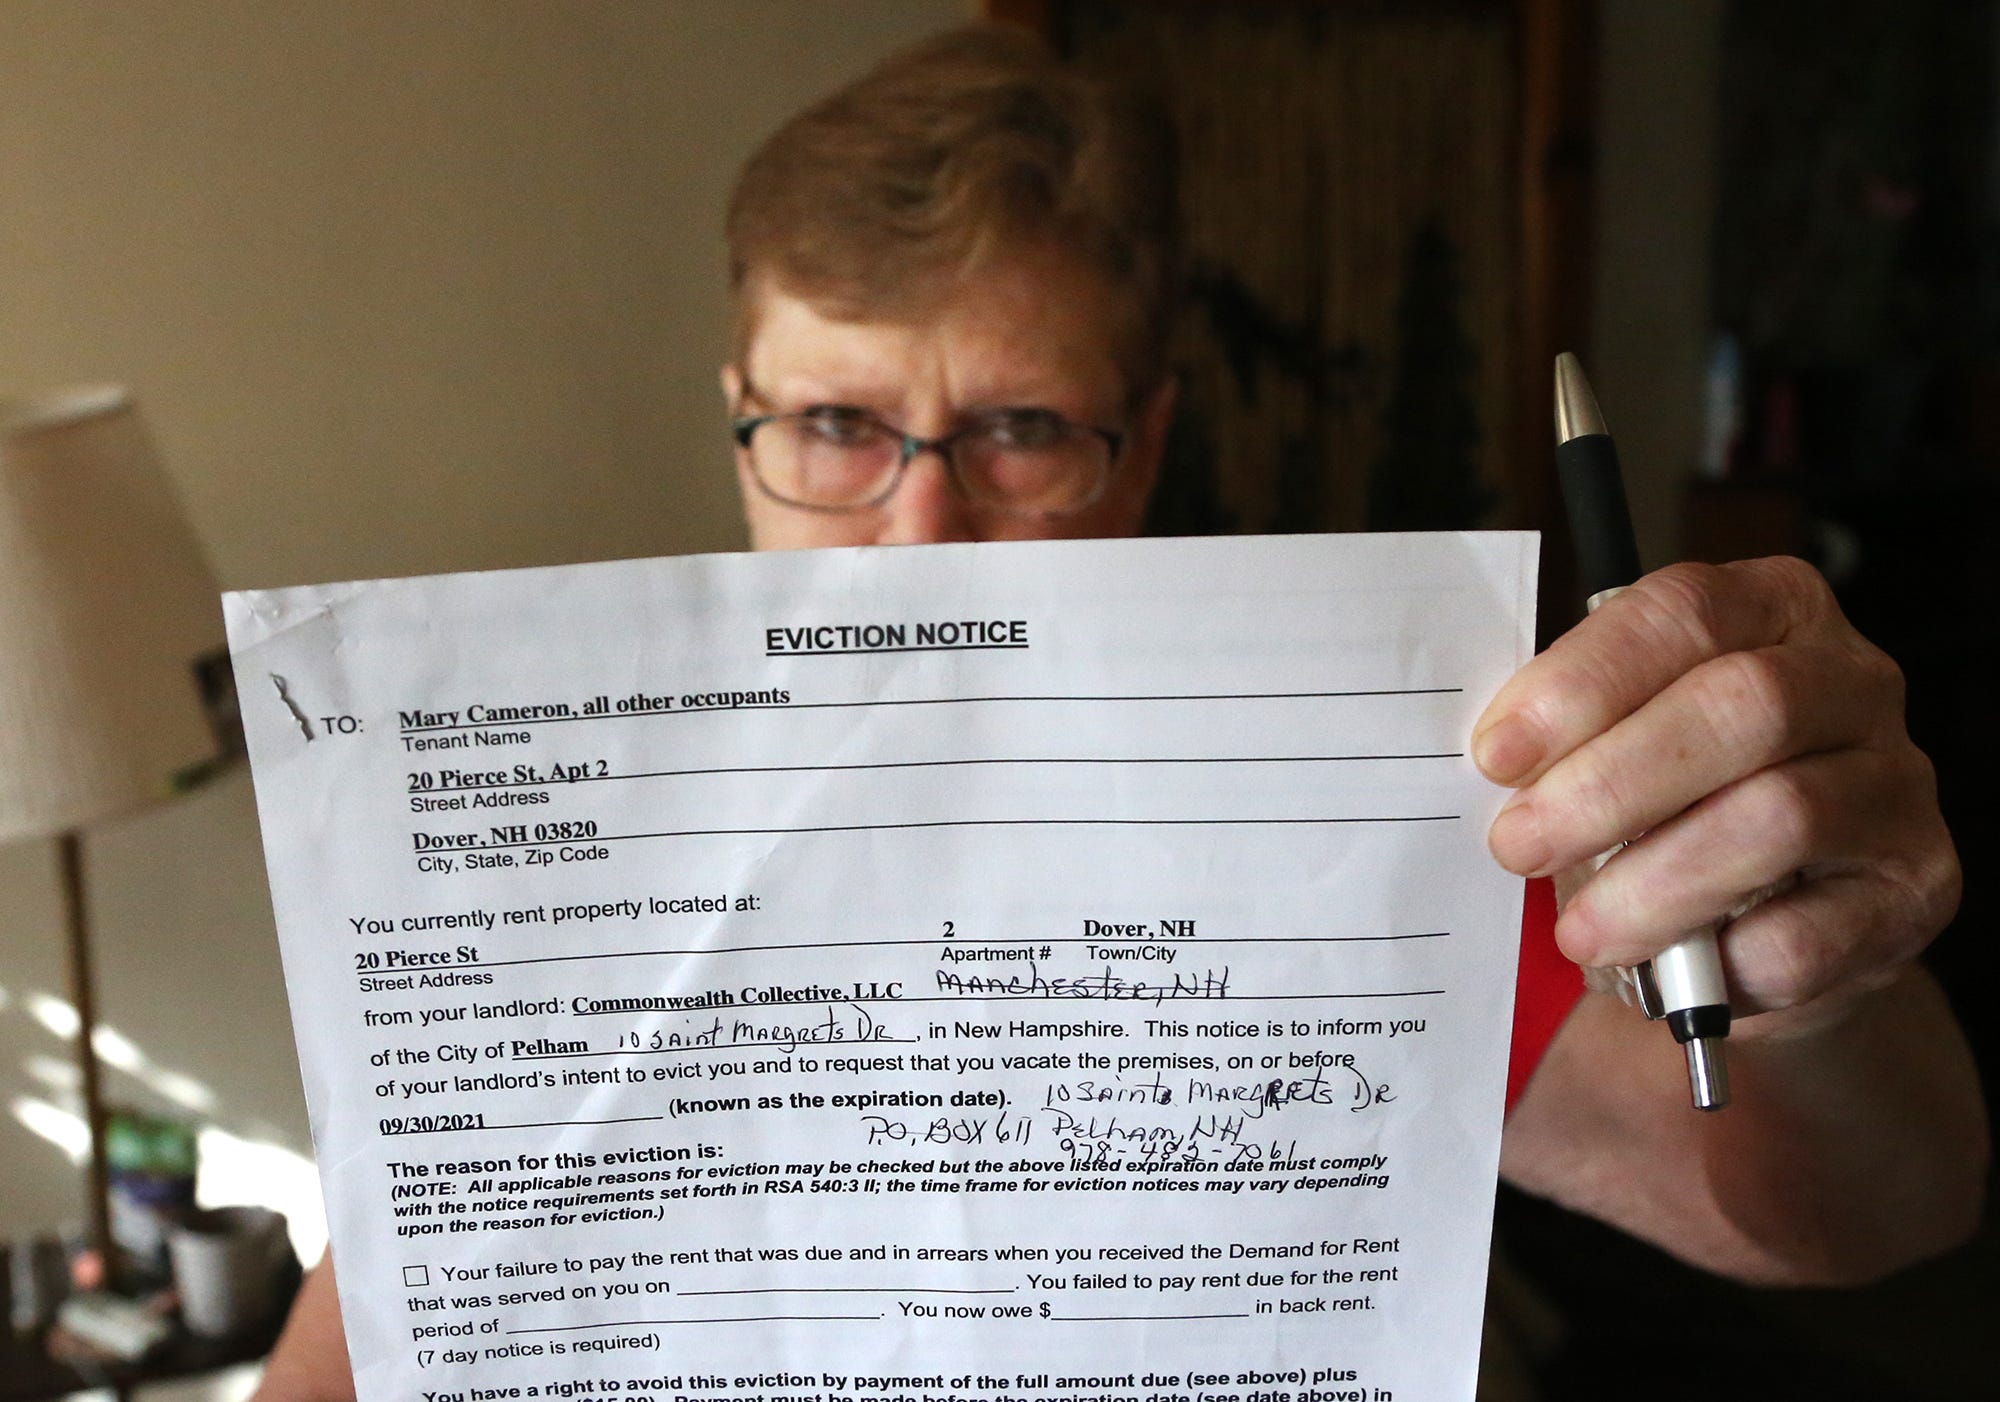 EVICTION NOTICE
TO: Mary Cameron, all other occupants
Tenant Name
20 Pierce St, Apt 2
Street Address
Dover, NH 03820
City, State, Zip Code
You currently rent property located at:
20 Pierce St 2 Dover, NH
Street Address Apartment # Town/City
from your landlord: Commonwealth Collective, LLC MANCHESTER, NH
of the City of Pelham 10 SAint MARgRetS DR , in New Hampshire. This notice is to inform you
of your landlord's intent to evict you and to request that you vacate the premises, on or before
09/30/2021 (known as the expiration date). 10 SAint MARgRetS DR
P.O. BOX 611 Pelham, NH
978-482-7061
The reason for this eviction is:
(NOTE: All applicable reasons for eviction may be checked but the above listed expiration date must comply
with the notice requirements set forth in RSA 540:3 II; the time frame for eviction notices may vary depending
upon the reason for eviction.)
Your failure to pay the rent that was due and in arrears when you received the Demand for Rent
that was served on you on . You failed to pay rent due for the rent
period of . You now owe $ in back rent.
(7 day notice is required)
You have a right to avoid this eviction by payment of the full amount due (see above) plus
($15.00). Payment must be made before the expiration date (see date above) in